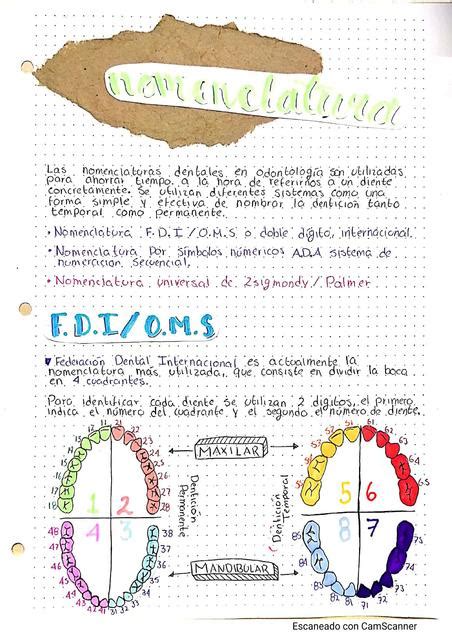 nomenclatura
Las nomenclaturas dentales en odontología son utilizadas
para ahorrar tiempo a la hora de referirnos a un diente
concretamente. Se utilizan diferentes sistemas como una
forma simple y efectiva de nombrar la dentición tanto
temporal como permanente.
• Nomenclatura F.D.I/O.M.S o doble dígito, internacional.
• Nomenclatura por símbolos númericos ADA sistema de
numeración secuencial.
• Nomenclatura universal de Zsigmondy/Palmer
F.D.I/O.M.S
Federación Dental Internacional es actualmente la
nomenclatura más utilizada, que consiste en dividir la boca
en 4 cuadrantes.
Para identificar cada diente se utilizan 2 dígitos, el primero
indica el número del cuadrante y el segundo el número de diente.
11 21
22
23
24
25
26
27
28
18
1 2
4 3
48
47
46
45
44
43
42 41 31 32 33
34
35
36
37
38
Dentición
Permanente
MAXILAR
MANDIBULAR
Dentición
Temporal
51 61
62
63
64
65
5 6
8 7
85
84
83
82 81 71 72
73
74
75
Escaneado con CamScanner